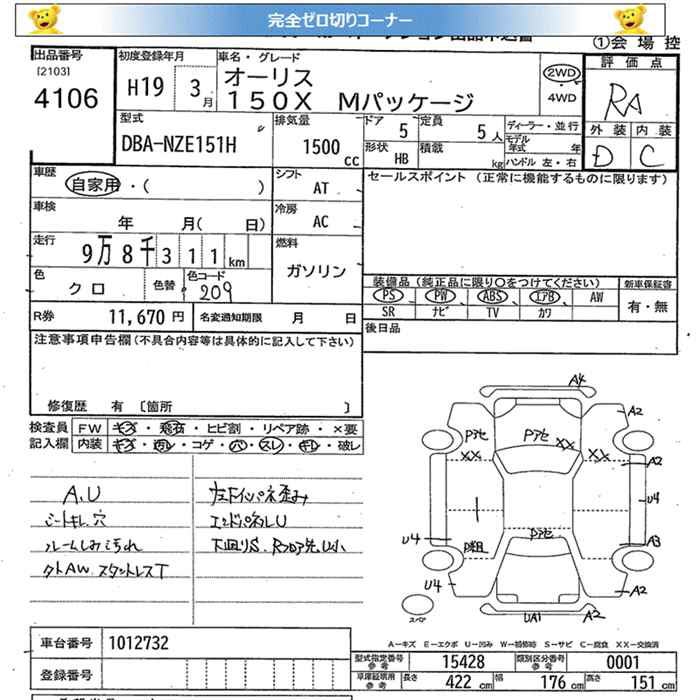 完全ゼロ切りコーナー
①会場控
出品番号
[2103]
4106
初度登録年月
H19 3月
車名・グレード
オーリス
150X Mパッケージ
2WD
4WD
評価点
RA
外装 内装
D C
型式
DBA-NZE151H
排気量
1500cc
ドア 5
定員 5人
形状 HB
積載 kg
ディーラー・並行
モデル年式 年
ハンドル 左・右
車歴
自家用・( )
シフト
AT
セールスポイント (正常に機能するものに限ります)
車検
年 月( 日)
冷房
AC
走行
9万8千311km
燃料
ガソリン
色
クロ
色替
色コード
209
装備品(純正品に限り○をつけてください)
新車保証書
PS PW ABS エアB AW
SR ナビ TV カワ
有・無
R券 11,670円
名変通知期限 月 日
後日品
注意事項申告欄(不具合内容等は具体的に記入して下さい)
修復歴 有 〔箇所 〕
検査員記入欄
FW キズ・飛石・ヒビ割・リペア跡・×要
内装 キズ・汚レ・コゲ・穴・スレ・キレ・破レ
A.U
シートキレ.穴
ルームしみ汚れ
タトAW.スタットレスT
左Fインパネ歪み
エンドパネルU
下回りS.
A4
A2
Pアセ
Pアセ
XX
XX
XX
A2
U4
A3
U4
Pアセ
U4
A2
スペア
UA1
A2
A-キズ E-エクボ U-凹み W-補修跡 S-サビ C-腐食 XX-交換済
車台番号 1012732
登録番号
型式指定番号参考 15428
類別区分番号 0001
車庫証明用参考 長さ 422cm 幅 176cm 高さ 151cm